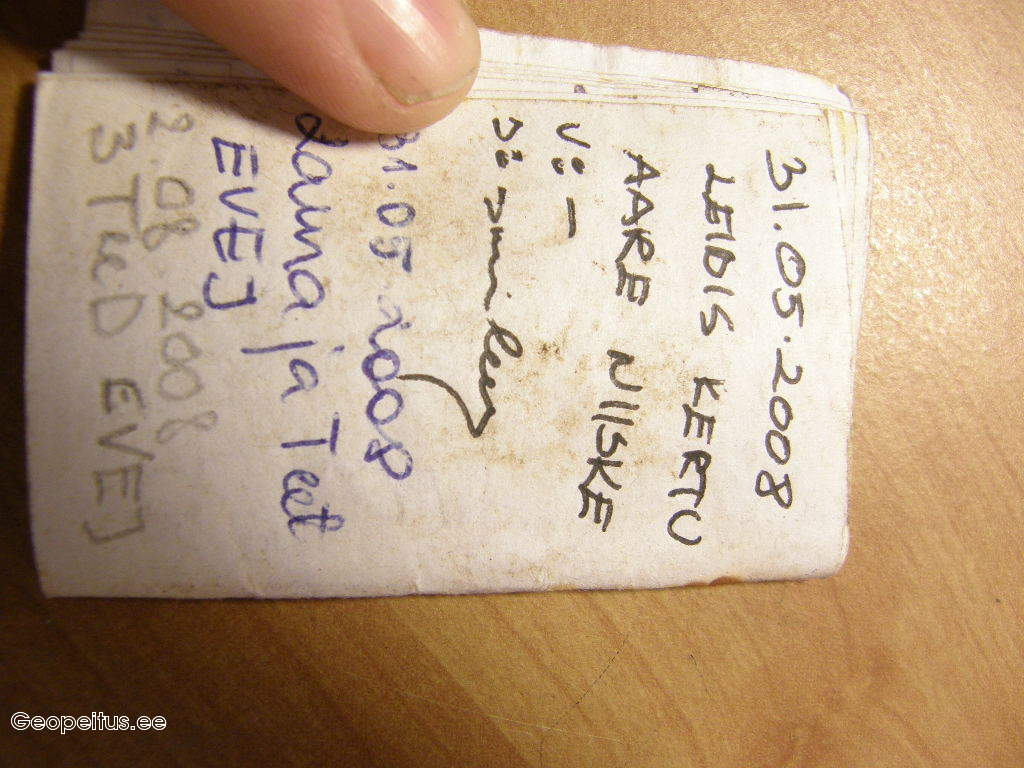 31.05.2008
LEIDIS KERTU
AARE NIISKE
V: -
J: Smiley
31.05.2008
Janna ja Teet
EVEJ
2.08.2008
3 TeeD EVEJ
Geopeitus.ee